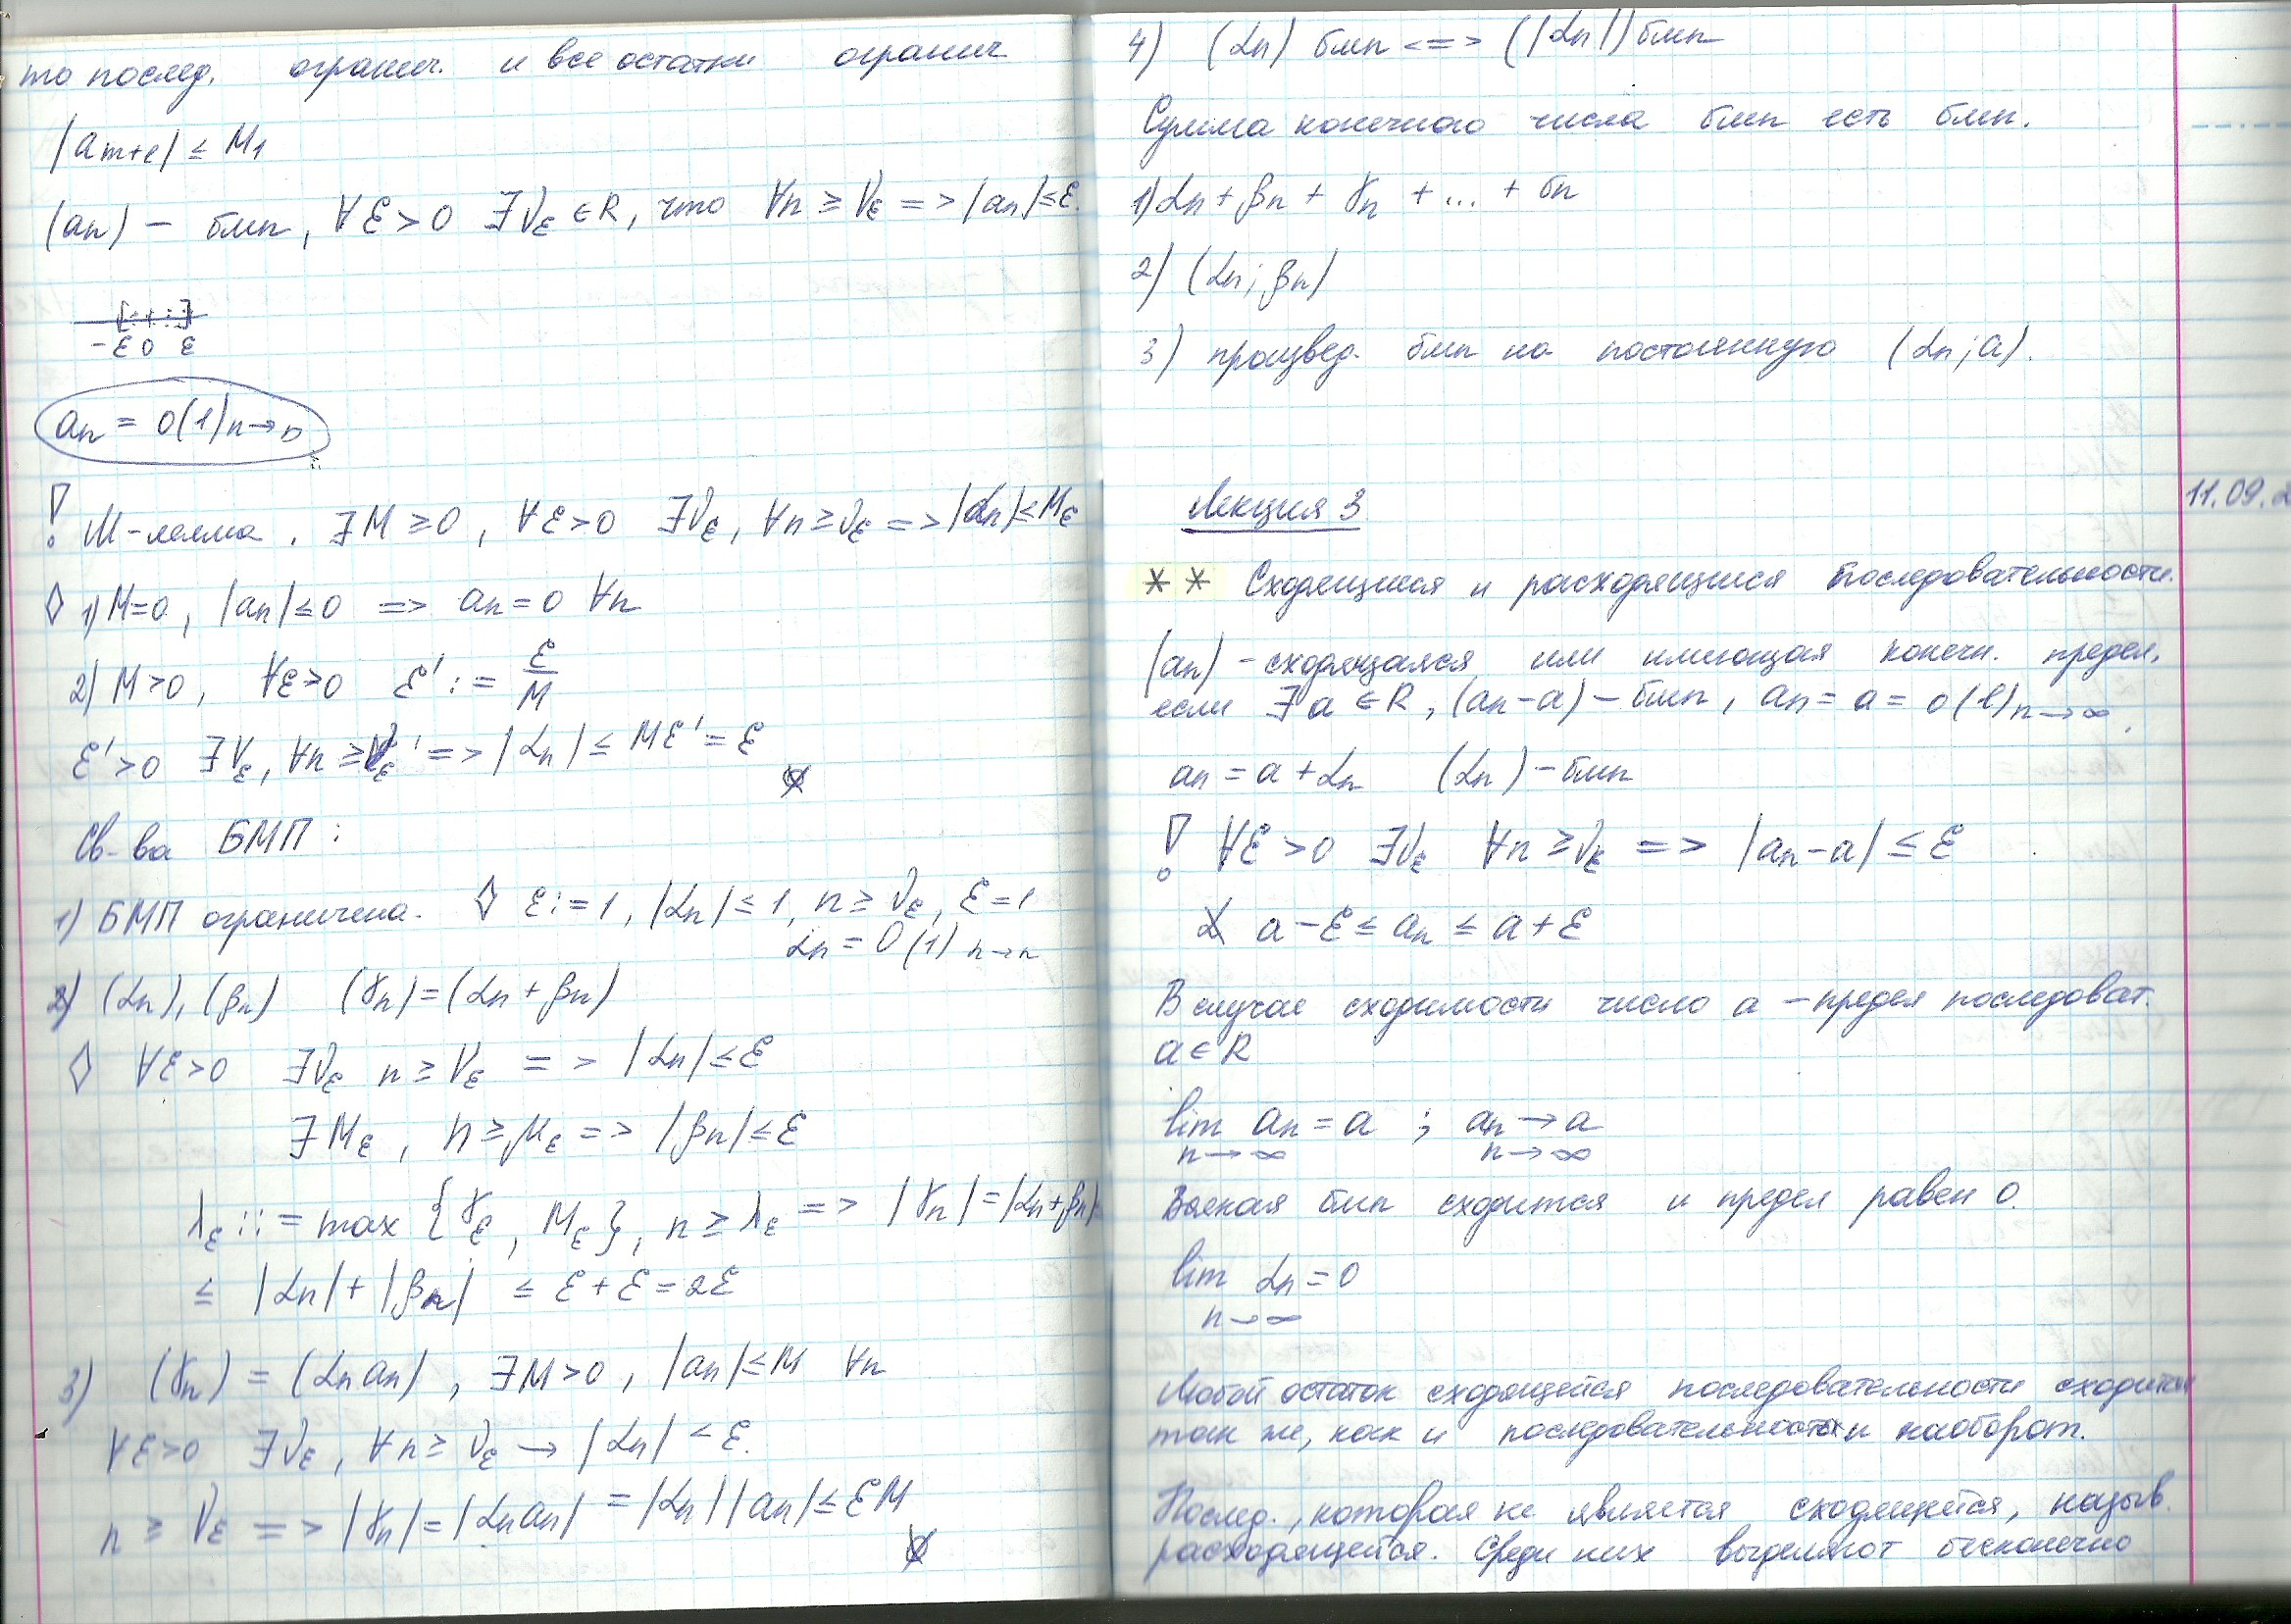 то послед. огранич. и все остатки огранич
|am+e| ≤ M1
(an) – бмп, ∀ε>0 ∃νε ∈R, что ∀n ≥ νε => |an|≤ε.
-ε 0 ε
an = o(1) n→∞
! М-лемма. ∃M ≥0, ∀ε>0 ∃νε, ∀n≥νε => |αn|≤Mε
◊ 1) M=0, |an|≤0 => an=0 ∀n
2) M>0, ∀ε>0 ε' := ε/M
ε'>0 ∃νε, ∀n ≥νε' => |αn| ≤ Mε' = ε
Св-ва БМП:
1) БМП ограничена. ◊ ε:=1, |αn|≤1, n≥νε, ε=1
αn = O(1) n→n
2) (αn), (βn) (γn)=(αn + βn)
◊ ∀ε>0 ∃νε n ≥ νε => |αn| ≤ε
∃Mε, n≥με => |βn|≤ε
λε ::= max {γε, Mε}, n ≥ λε => |γn| = |αn+βn|≤
≤ |αn|+|βn| ≤ ε+ε=2ε
3) (γn) = (αn an), ∃M>0, |an|≤M ∀n
∀ε>0 ∃νε, ∀n≥ νε → |αn| ≤ ε.
n ≥ νε => |γn| = |αn an| = |αn| |an| ≤ εM
4) (αn) бмп <=> (|αn|) бмп
Сумма конечного числа бмп есть бмп.
1) αn + βn + γn + ... + δn
2) (αn; βn)
3) произвед. бмп на постоянную (αn; a).
Лекция 3
11.09.2
** Сходящиися и расходящиися последовательности.
(an) – сходящаяся или имеющая конечн. предел,
если ∃ a ∈ R, (an-a) – бмп, an = a = o(1) n→∞.
an = a + αn (αn) – бмп
! ∀ε >0 ∃νε ∀n ≥νε => |an-a| ≤ ε
a-ε ≤ an ≤ a+ε
В случае сходимости число a – предел последоват.
a∈R
lim an = a ; an → a
n→∞ n→∞
Всякая бмп сходится и предел равен 0.
lim αn = 0
n→∞
Любой остаток сходящейся последовательности сходится
так же, как и последовательность и наоборот.
Послед., которая не является сходящейся, назыв.
расходящейся. Среди них выделяют бесконечно